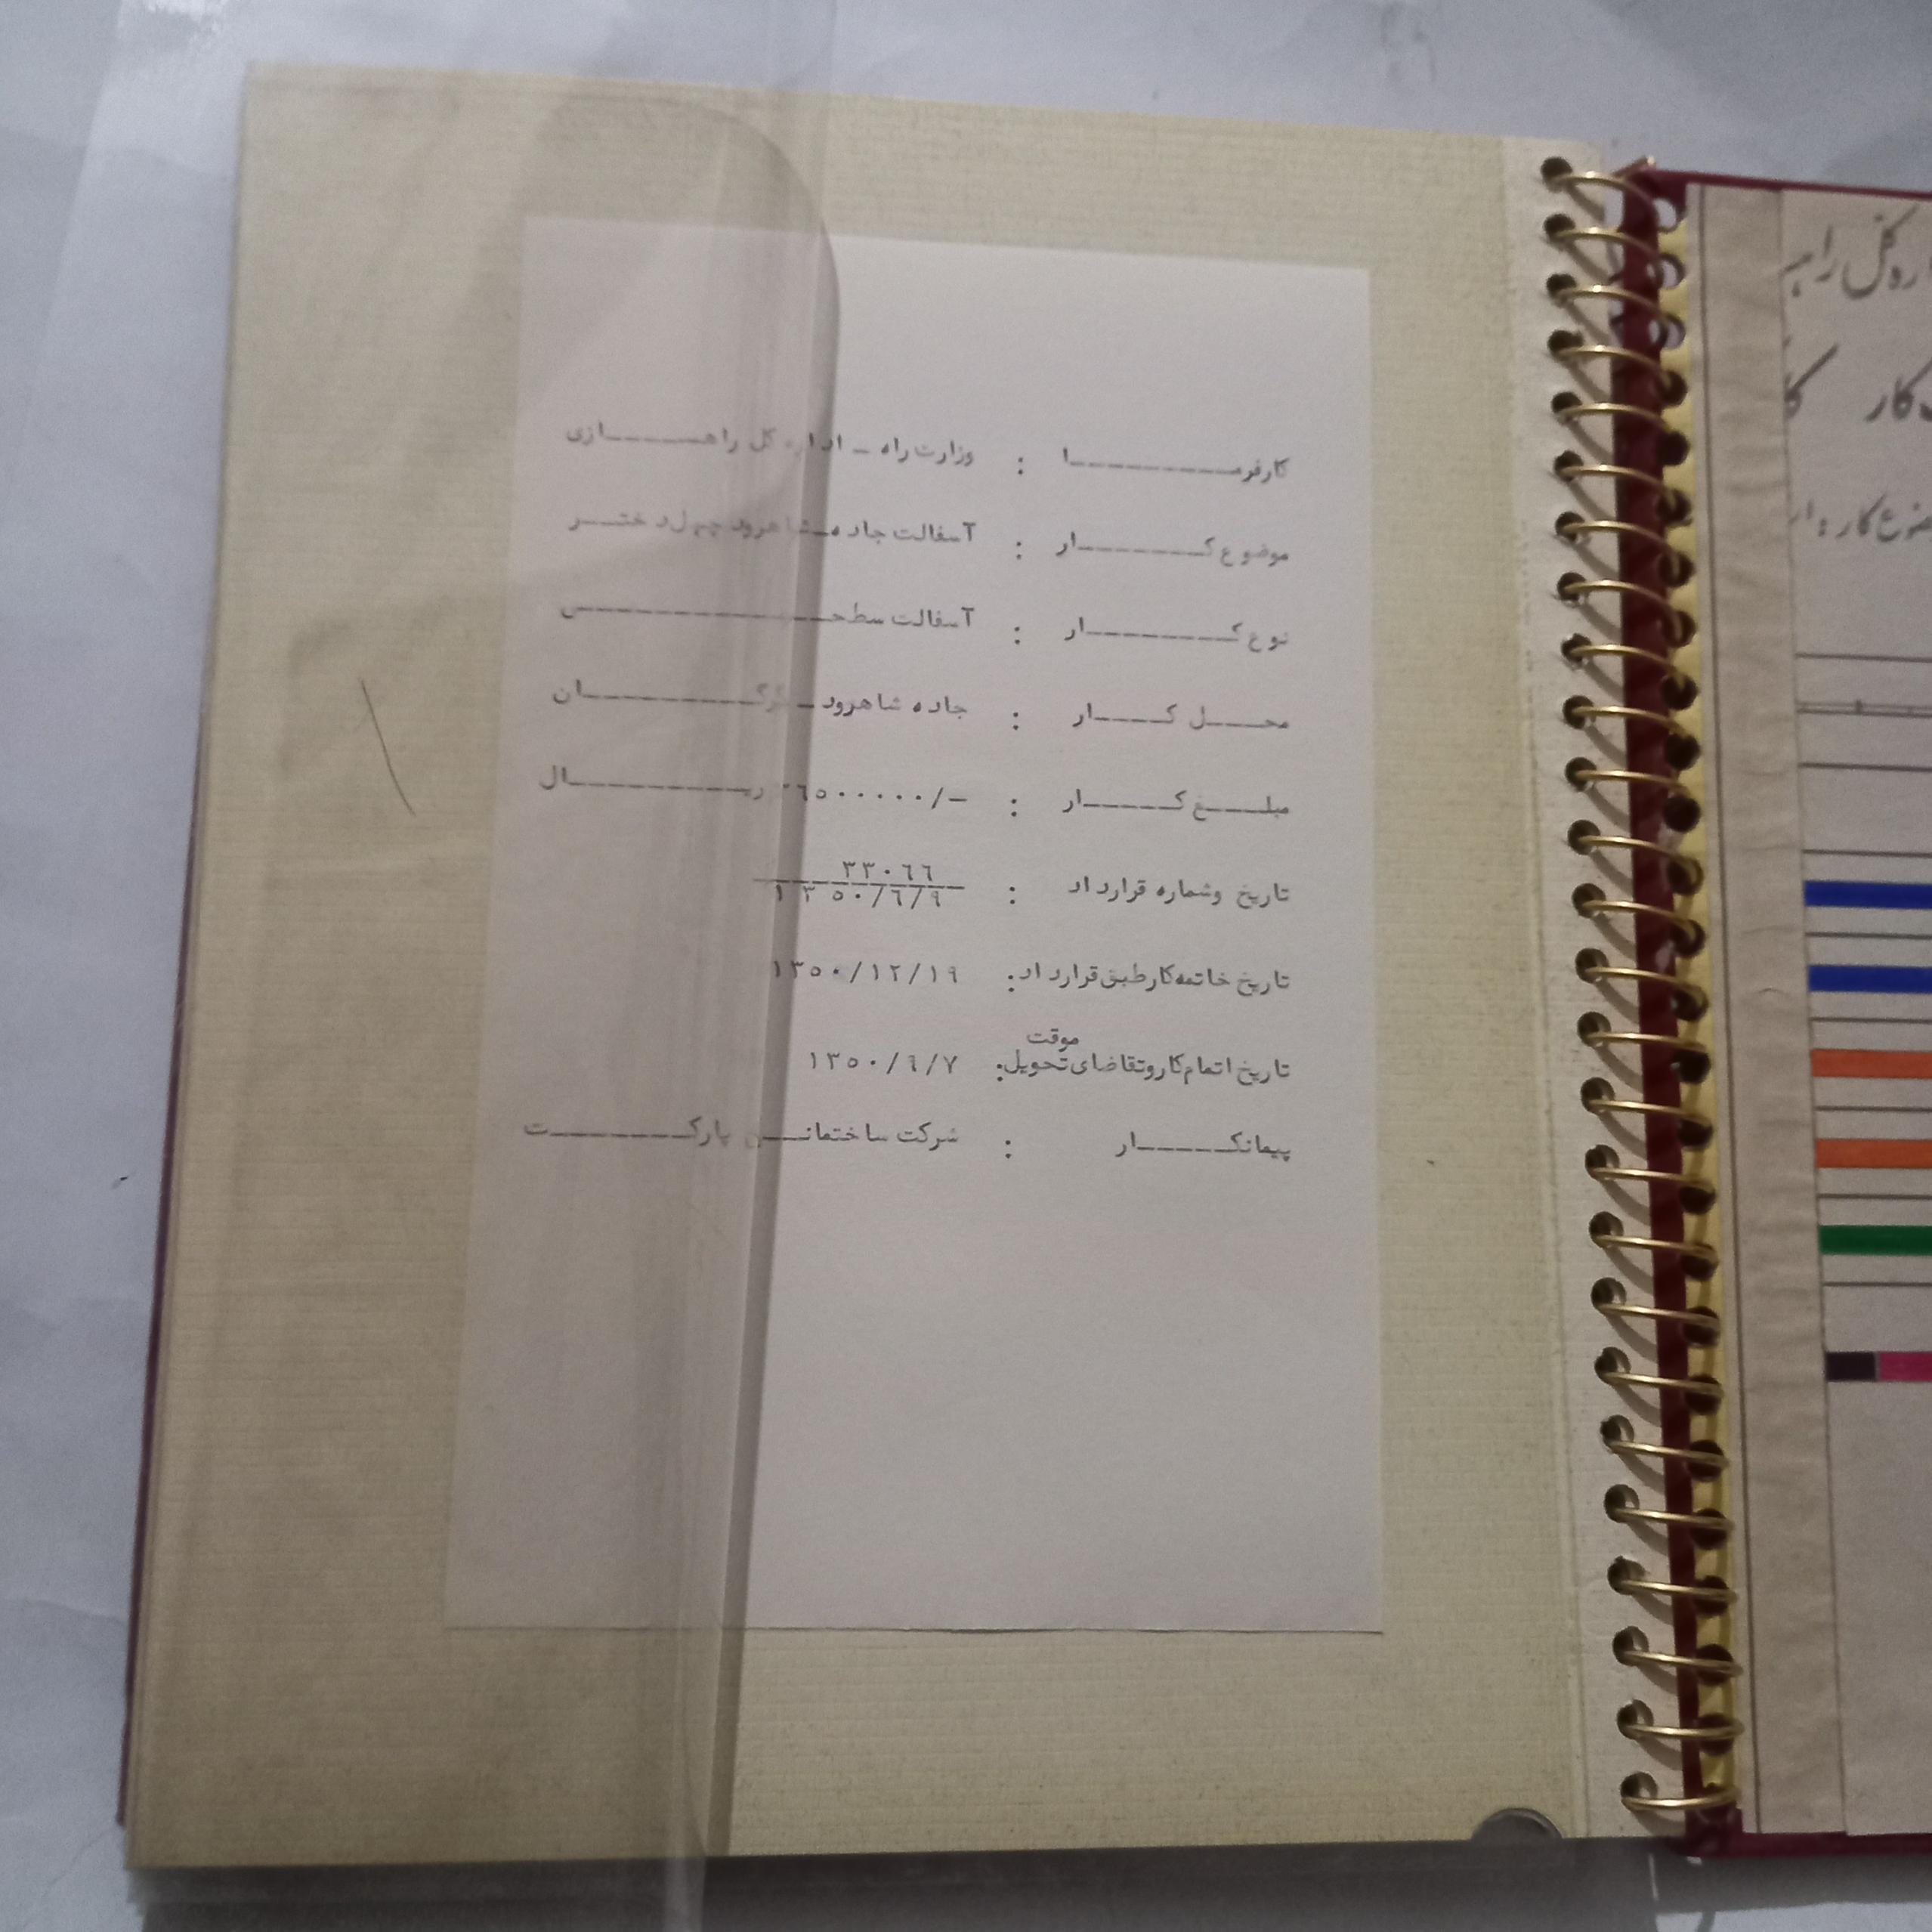 کارفرما : وزارت راه ــ اداره کل راهسازی
موضوع کار : آسفالت جاده شاهرود چهل دختر
نوع کار : آسفالت سطحی
محل کار : جاده شاهرود ــ گرگان
مبلغ کار : ــ/۳۶۵۰۰۰۰۰ ریال
تاریخ وشماره قرارداد : ۳۳۰۶۶
۱۳۵۰/۶/۹
تاریخ خاتمه کار طبق قرارداد : ۱۳۵۰/۱۲/۱۹
موقت
تاریخ اتمام کار و تقاضای تحویل :
پیمانکار : شرکت ساختمانی پارکت
کل راه
کار
کار :